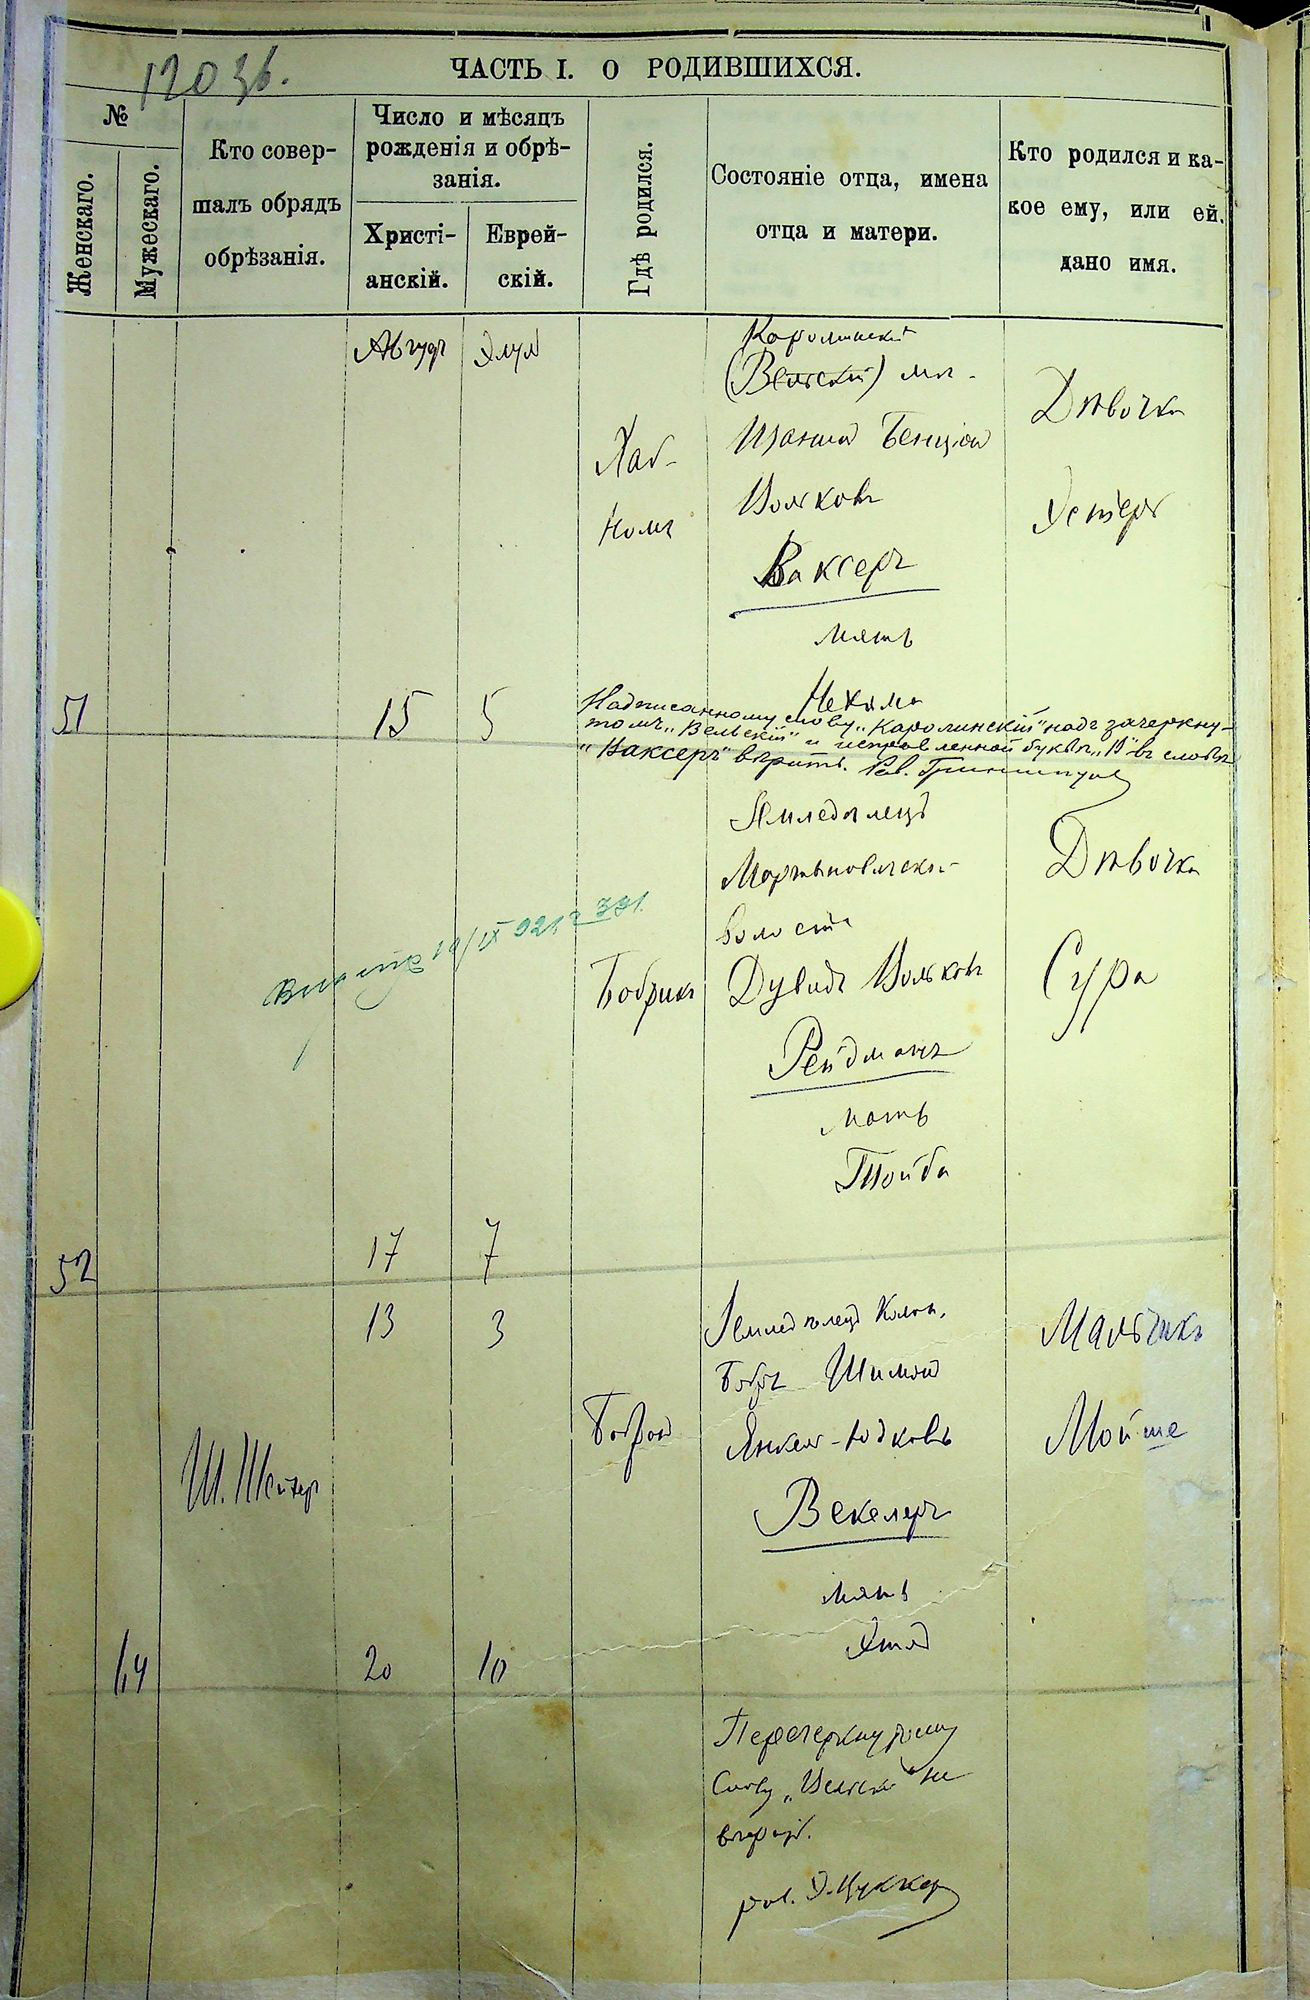 1203б.
ЧАСТЬ I. О РОДИВШИХСЯ.
№
Женскаго.
Мужескаго.
Кто совер-
шалъ обрядъ
обрѣзанія.
Число и мѣсяцъ
рожденія и обрѣ-
занія.
Христі-
анскій.
Еврей-
скій.
Гдѣ родился.
Состояніе отца, имена
отца и матери.
Кто родился и ка-
кое ему, или ей,
дано имя.
Августъ
Элул
51
15
5
Хаб-
номъ
Каролинскій
(Вельскій) мѣ-
щанинъ Бенціон
Волковъ
Ваксеръ
мать
Нехама
Дѣвочка
Эстеръ
Надписанному слову „Каролинскій" надъ зачеркну-
томъ „Вельскій" и исправленной буквѣ „В" въ словѣ
„Ваксеръ" вѣрить. Рав.
52
17
7
Бобрикъ
Земледѣлецъ
Мартыновической
волости
Дувидъ Волковъ
Рейдманъ
мать
Тойба
Дѣвочка
Сура
64
Ш. Шейхер
13
3
20
10
Земледѣлецъ Колон.
Бобръ Шимон
Янкель-Юдковъ
Векслеръ
мать
Мальчикъ
Мойше
Перечеркнутому
слову „Вельскій" не
вѣрить.
рав. Э. Цуккер